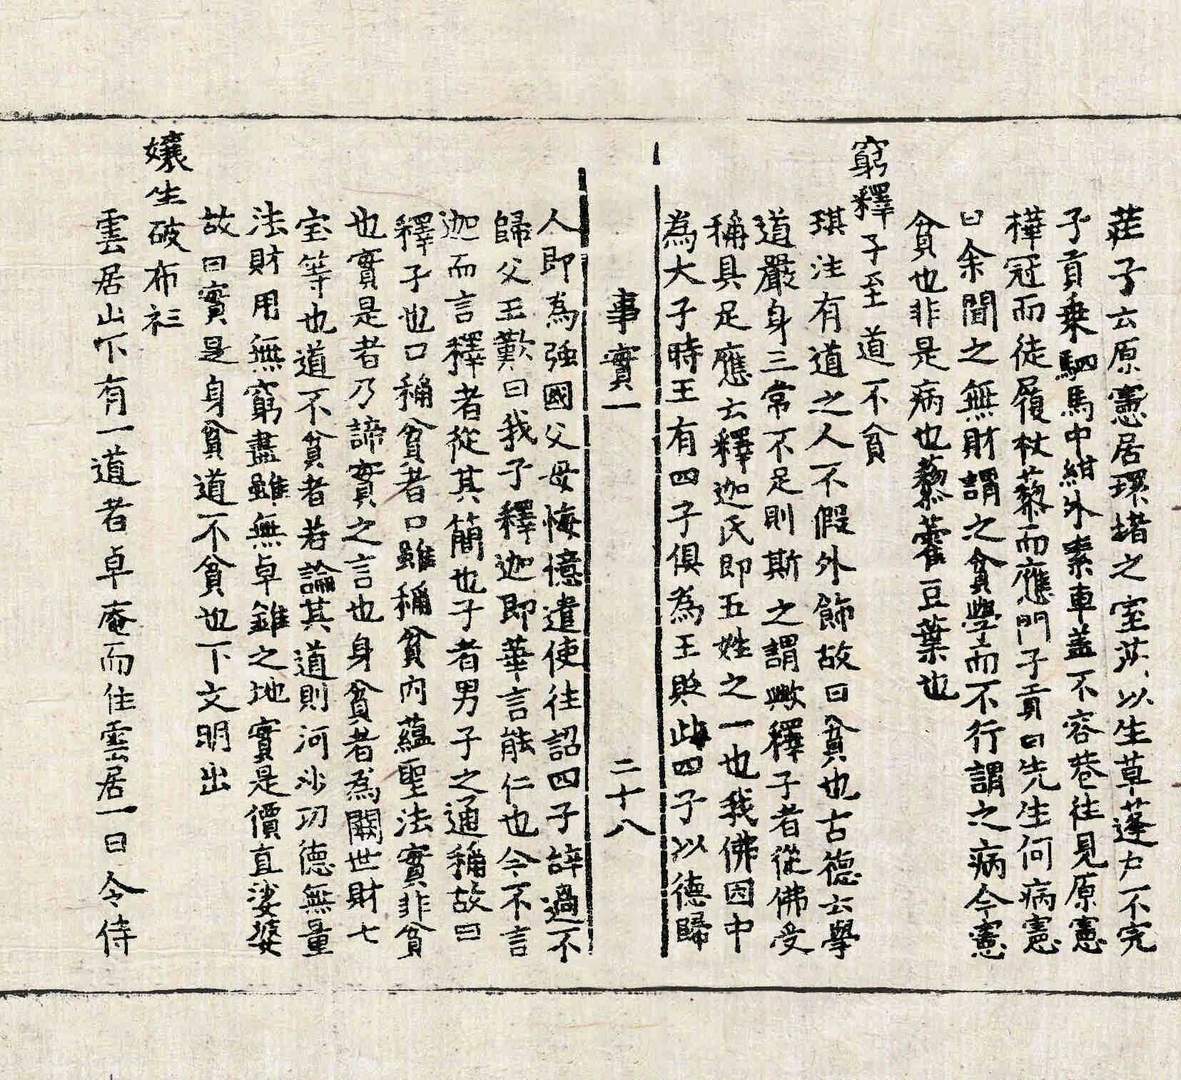 莊子云原憲居環堵之室莎以生草蓬戶不完
子貢乗駟馬中紺外素車盖不容巷往見原憲
樺冠而徒履杖藜而應門子貢曰先生何病憲
曰余聞之無財謂之貧學而不行謂之病今憲
貧也非是病也藜藿豆葉也
窮釋子至道不貧
琪注有道之人不假外飾故曰貧也古德云學
道嚴身三常不足則斯之謂歟釋子者從佛受
稱具足應云釋迦氏即五姓之一也我佛因中
為大子時王有四子俱為王貶此四子以德歸
事實一 二十八
人即為強國父母悔憶遣使往詔四子辝過不
歸父王歎曰我子釋迦即華言能仁也今不言
迦而言釋者從其簡也子者男子之通稱故曰
釋子也口稱貧者口雖稱貧內蘊聖法實非貧
也實是者乃諦實之言也身貧者為闕世財七
宝等也道不貧者若論其道則河沙功德無量
法財用無窮盡雖無卓錐之地實是價直娑婆
故曰實是身貧道不貧也下文明出
孃生破布衫
雲居山下有一道者卓庵而住雲居一日令侍